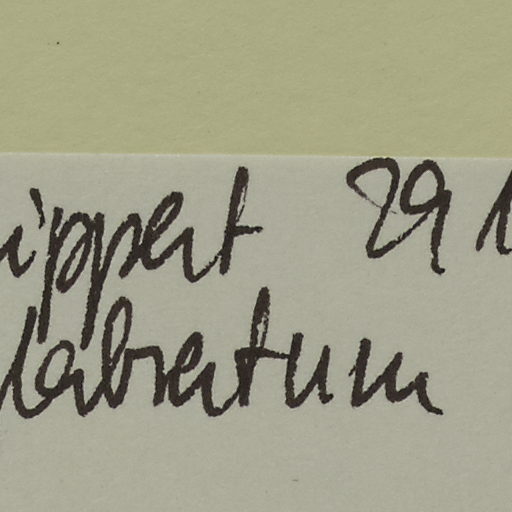 ippert 29 1
labratum